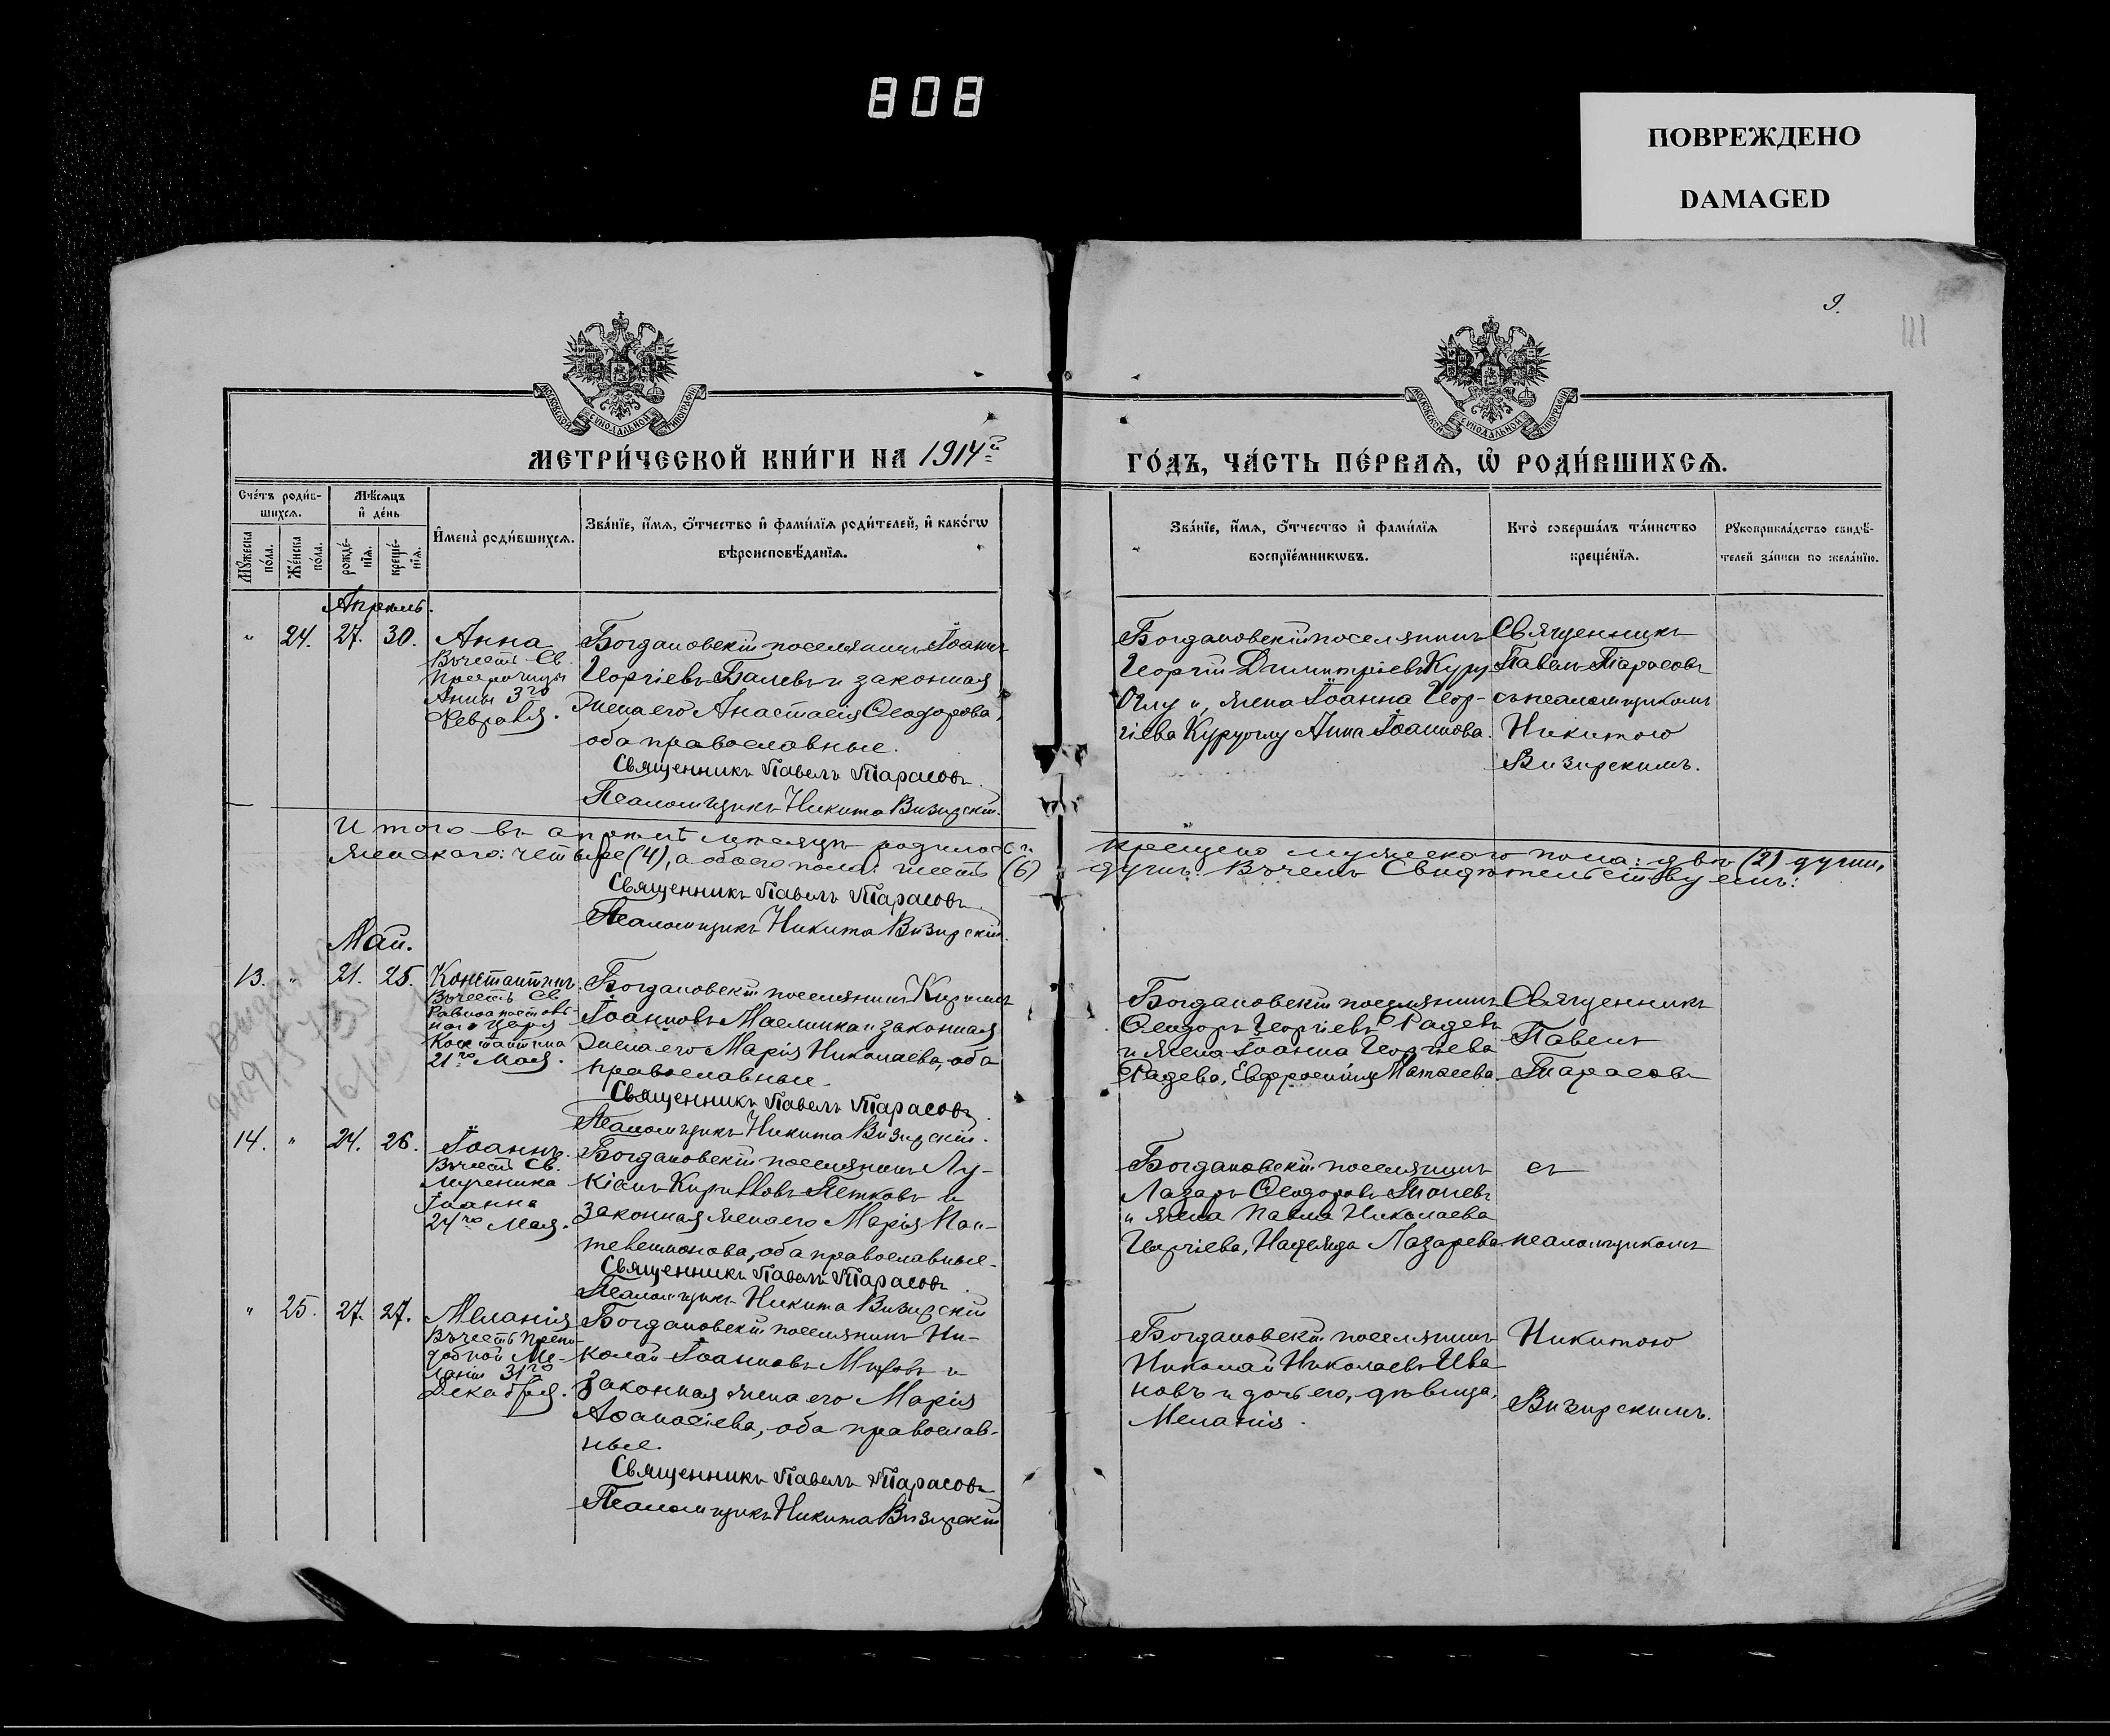 808
ПОВРЕЖДЕНО
DAMAGED
9.
111
МОСКОВСКОЙ СѴНОДАЛЬНОЙ ТИПОГРАФІИ
МОСКОВСКОЙ СѴНОДАЛЬНОЙ ТИПОГРАФІИ
МЕТРИ́ЧЕСКОЙ КНИ́ГИ НА 1914й
ГО́ДЪ, ЧА́СТЬ ПЕ́РВАѦ, Ѡ РОДИ́ВШИХСѦ.
Сче́тъ роди́в-
шихсѧ.
Мꙋ́жеска
по́ла.
Же́нска
по́ла.
Мѣ́сѧцъ
и҆ де́нь
рожде́-
нїѧ.
креще́-
нїѧ.
И҆мена̀ роди́вшихсѧ.
Зва́нїе, и҆́мѧ, ѻ҆́тчество и҆ фами́лїѧ роди́телей, и҆ како́гѡ
вѣроисповѣ́данїѧ.
Зва́нїе, и҆́мѧ, ѻ҆́тчество и҆ фами́лїѧ
воспрїе́мникѡвъ.
Кто̀ соверша́лъ та́инство
креще́нїѧ.
Рꙋкоприкла́дство свидѣ́-
телей за́писи по жела́нїю.
Апрель.
" 24. 27. 30. Анна
Въ честь Св.
Пророчицы
Анны 3го
Февраля.
Богдановскій поселянинъ Іоаннъ
Георгіевъ Палевъ и законная
жена его Анастасія Ѳеодорова,
оба православные.
Священникъ Павелъ Тарасовъ.
Псаломщикъ Никита Визирскій.
Богдановскій поселянинъ
Георгій Димитріевъ Куру
Оглу и, жена Іоанна Геор-
гіева Куруоглу Анна Іоаннова.
Священникъ
Павелъ Тарасовъ
съ псаломщикомъ
Никитою
Визирскимъ.
Итого въ апрелѣ месяцѣ родилось и крещено мужескаго пола: двѣ (2) души,
женскаго: четыре (4), а обоего пола: шесть (6) душъ. Въ чемъ Свидѣтельствуемъ:
Священникъ Павелъ Тарасовъ.
Псаломщикъ Никита Визирскій.
Май.
13. " 21. 25. Константинъ.
Въ честь Св.
Равноапостоль-
наго Царя
Константина
21го Мая.
Богдановскій поселянинъ Кириллъ
Іоанновъ Маслинка и законная
жена его Марія Николаева, оба
православные.
Священникъ Павелъ Тарасовъ
Псаломщикъ Никита Визирскій.
Богдановскій поселянинъ
Ѳеодоръ Георгіевъ Радевъ
и жена Іоанна Георгіева
Радева, Евфросинія Матѳеева.
Священникъ
Павелъ
Тарасовъ
14. " 24. 26. Іоаннъ.
Въ честь Св.
Мученика
Іоанна
24го Мая.
Богдановскій поселянинъ Лу-
кіанъ Кирилловъ Петковъ и
законная жена его Марія Пан-
телеимонова, оба православные.
Священникъ Павелъ Тарасовъ
Псаломщикъ Никита Визирскій
Богдановскій поселянинъ
Лазарь Ѳеодоровъ Таневъ
и жена Павла Николаева
Георгіева, Надежда Лазарева.
съ
псаломщикомъ
" 25. 27. 27. Меланія
Въ честь Препо-
добной Ме-
ланіи 31го
Декабря.
Богдановскій поселянинъ Ни-
колай Іоанновъ Мировъ и
законная жена его Марія
Аѳанасіева, оба православ-
ные.
Священникъ Павелъ Тарасовъ
Псаломщикъ Никита Визирскій
Богдановскій поселянинъ
Николай Николаевъ Ива
новъ и дочь его, дѣвица,
Меланія.
Никитою
Визирскимъ.